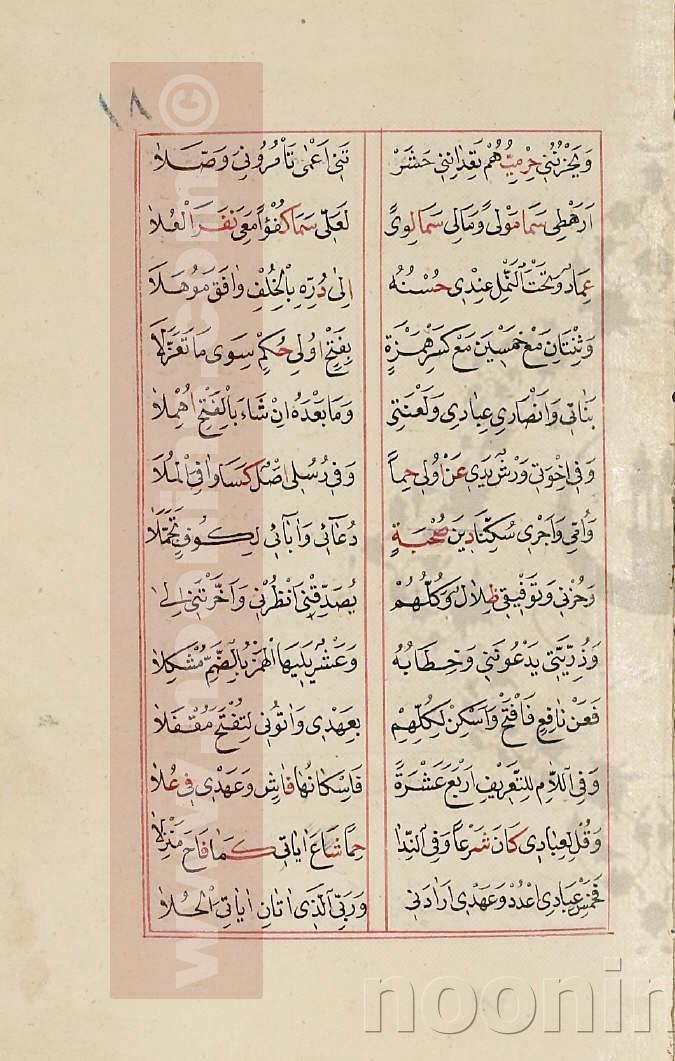 ١٨
وَيَحْزُنُنِي حِرْمِيُّهُمْ تَعِدَانِنِي حَشَرْ تَنِي اَعْمٰى تَأْمُرُونِي وَصَلَا
اَرَهْطِي سَمَا مَوْلًى وَمَالِي سَمَا لِوًى لَعَلِّي سَمَا كُفْؤًا مَعِي نَفَرُ الْعُلَا
عِمَادٌ وَتَحْتَ النَّمْلِ عِنْدِي حُسْنُهُ اِلٰى دُرِّهِ بِالْخُلْفِ وَافَقَ مَوْهَلَا
وَثِنْتَانِ مَعْ خَمْسِينَ مَعْ كَسْرِ هَمْزَةٍ بِفَتْحِ اُولِي حُكْمٍ سِوٰى مَا تَعَزَّلَا
بَنَاتِي وَاَنْصَارِي عِبَادِي وَلَعْنَتِي وَمَا بَعْدَهُ اِنْ شَاءَ بِالْفَتْحِ اُهْمِلَا
وَفِي اِخْوَتِي وَرْشٌ يَدِي عَنْ اُولِي حِمًا وَفِي رُسُلِي اَصْلٌ كَسَا وَافِيَ الْمُلَا
وَاُمِّي وَاَجْرِي سُكِّنَا دِينَ صُحْبَةٍ دُعَائِي وَاٰبَائِي لِكُوفٍ تَجَمَّلَا
وَحُزْنِي وَتَوْفِيقِي ظِلَالٌ وَكُلُّهُمْ يُصَدِّقُنِي انْظُرْنِي وَاَخَّرْتَنِي اِلٰى
وَذُرِّيَّتِي يَدْعُونَنِي وَخِطَابُهُ وَعَشْرٌ يَلِيهَا الْهَمْزُ بِالضَّمِّ مُشْكِلَا
فَعَنْ نَافِعٍ فَافْتَحْ وَاَسْكِنْ لِكُلِّهِمْ بِعَهْدِي وَاٰتُونِي لِتَفْتَحَ مُقْفَلَا
وَفِي اللَّامِ لِلتَّعْرِيفِ اَرْبَعَ عَشْرَةً فَاِسْكَانُهَا فَاشٍ وَعَهْدِي فِي عُلَا
وَقُلْ لِعِبَادِي كَانَ شَرْعًا وَفِي النِّدَا حِمًا شَاعَ اٰيَاتِي كَمَا فَاحَ مَنْزِلَا
فَخَمْسَ عِبَادِي اعْدُدْ وَعَهْدِي اَرَادَنِي وَرَبِّي الَّذِي اٰتَانِ اٰيَاتِيَ الْحُلَا
www.noonline.com ©
noonin